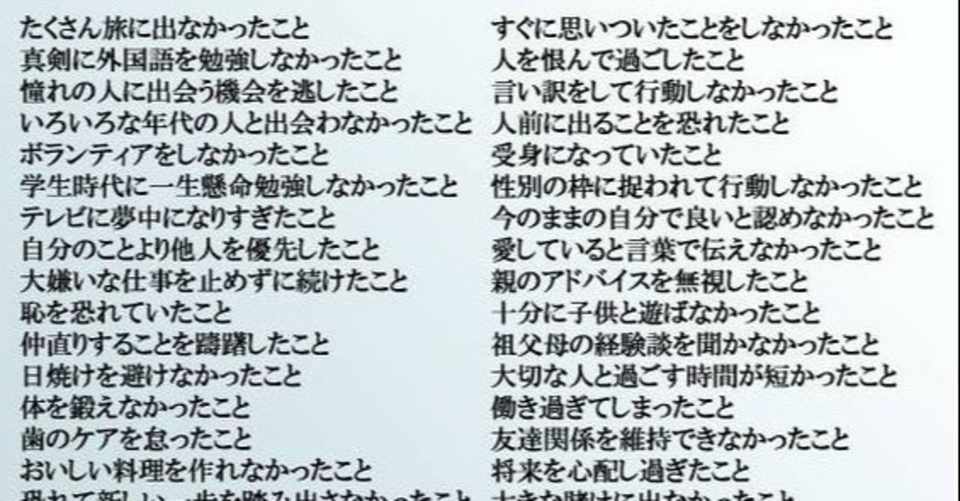 たくさん旅に出なかったこと
真剣に外国語を勉強しなかったこと
憧れの人に出会う機会を逃したこと
いろいろな年代の人と出会わなかったこと
ボランティアをしなかったこと
学生時代に一生懸命勉強しなかったこと
テレビに夢中になりすぎたこと
自分のことより他人を優先したこと
大嫌いな仕事を止めずに続けたこと
恥を恐れていたこと
仲直りすることを躊躇したこと
日焼けを避けなかったこと
体を鍛えなかったこと
歯のケアを怠ったこと
おいしい料理を作れなかったこと
恐れて新しい一歩を踏み出さなかったこと
すぐに思いついたことをしなかったこと
人を恨んで過ごしたこと
言い訳をして行動しなかったこと
人前に出ることを恐れたこと
受身になっていたこと
性別の枠に捉われて行動しなかったこと
今のままの自分で良いと認めなかったこと
愛していると言葉で伝えなかったこと
親のアドバイスを無視したこと
十分に子供と遊ばなかったこと
祖父母の経験談を聞かなかったこと
大切な人と過ごす時間が短かったこと
働き過ぎてしまったこと
友達関係を維持できなかったこと
将来を心配し過ぎたこと
大きな賭けに出なかったこと